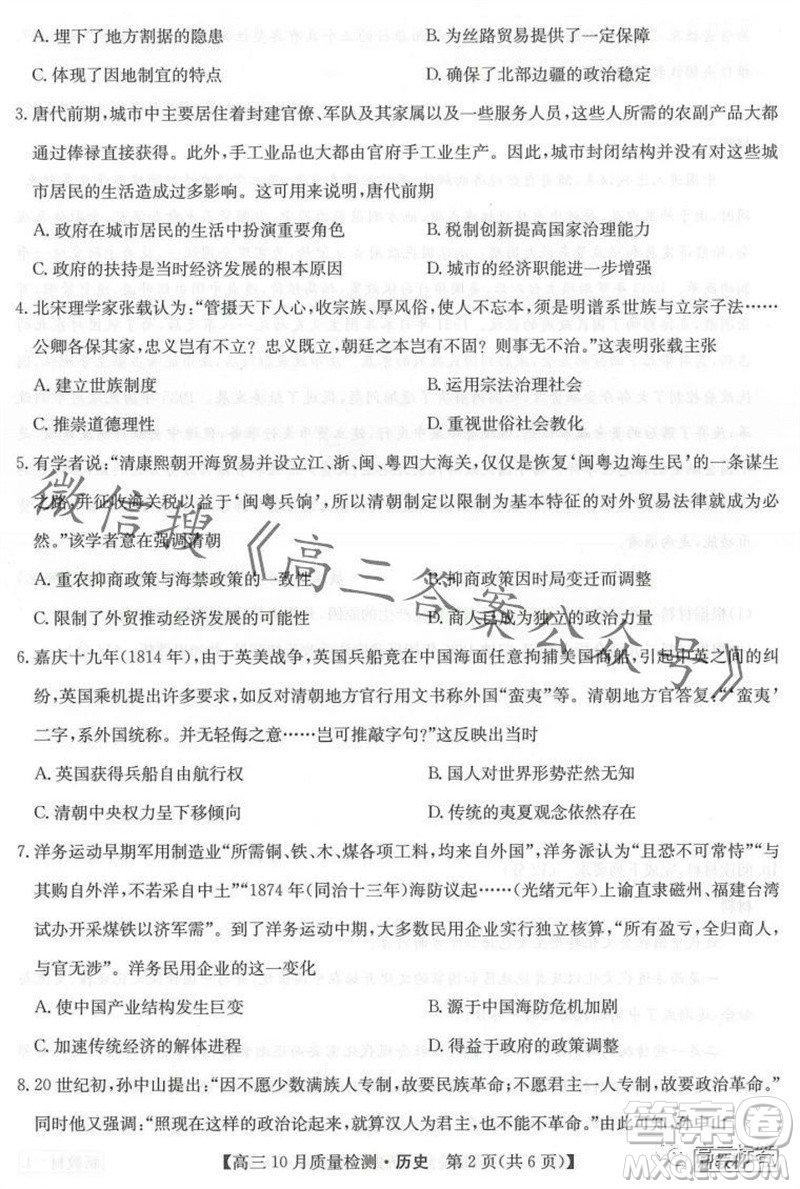 A.埋下了地方割据的隐患 B.为丝路贸易提供了一定保障
C.体现了因地制宜的特点 D.确保了北部边疆的政治稳定
3.唐代前期,城市中主要居住着封建官僚、军队及其家属以及一些服务人员,这些人所需的农副产品大都
通过俸禄直接获得。此外,手工业品也大都由官府手工业生产。因此,城市封闭结构并没有对这些城
市居民的生活造成过多影响。这可用来说明,唐代前期
A.政府在城市居民的生活中扮演重要角色 B.税制创新提高国家治理能力
C.政府的扶持是当时经济发展的根本原因 D.城市的经济职能进一步增强
4.北宋理学家张载认为:“管摄天下人心,收宗族、厚风俗,使人不忘本,须是明谱系世族与立宗子法……
公卿各保其家,忠义岂有不立?忠义既立,朝廷之本岂有不固?则事无不治。”这表明张载主张
A.建立世族制度 B.运用宗法治理社会
C.推崇道德理性 D.重视世俗社会教化
5.有学者说:“清康熙朝开海贸易并设立江、浙、闽、粤四大海关,仅仅是恢复‘闽粤边海生民’的一条谋生
之路,并征收海关税以益于‘闽粤兵饷’,所以清朝制定以限制为基本特征的对外贸易法律就成为必
然。”该学者意在强调清朝
A.重农抑商政策与海禁政策的一致性 B.抑商政策因时局变迁而调整
C.限制了外贸推动经济发展的可能性 D.商人已成为独立的政治力量
6.嘉庆十九年(1814年),由于英美战争,英国兵船竟在中国海面任意拘捕美国商船,引起中英之间的纠
纷,英国乘机提出许多要求,其中包括清朝地方官行用文书称外国“蛮夷”等。清朝地方官答复:“‘蛮夷’
二字,系外国统称。并无轻侮之意……岂可推敲字句?”这反映出当时
A.英国获得兵船自由航行权 B.国人对世界形势茫然无知
C.清朝中央权力呈下移倾向 D.传统的夷夏观念依然存在
7.洋务运动早期军用制造业“所需铜、铁、木、煤各项工料,均来自外洋”,洋务派认为“且恐不可常恃”“与
其购自外洋,不若采自中土”“1874年(同治十三年)海防议起……(光绪元年)上谕直隶磁州、福建台湾
试办开采煤铁以济军需”。到了洋务运动中期,洋务民用企业实行独立核算,“所有盈亏,全归商人,
与官无涉”。洋务民用企业的这一变化
A.使中国产业结构发生巨变 B.源于中国海防危机加剧
C.加速传统经济的解体进程 D.得益于政府的政策调整
8.20世纪初,孙中山提出:“因不愿少数满族人专制,故要民族革命;不愿君主一人专制,故要政治革命。”
同时他又强调:“照现在这样的政治论起来,就算汉人为君主,也不能不革命。”由此可知,孙中山
【高三10月质量检测·历史 第2页(共6页)】
微信搜《高三答案公众号》
答案卷